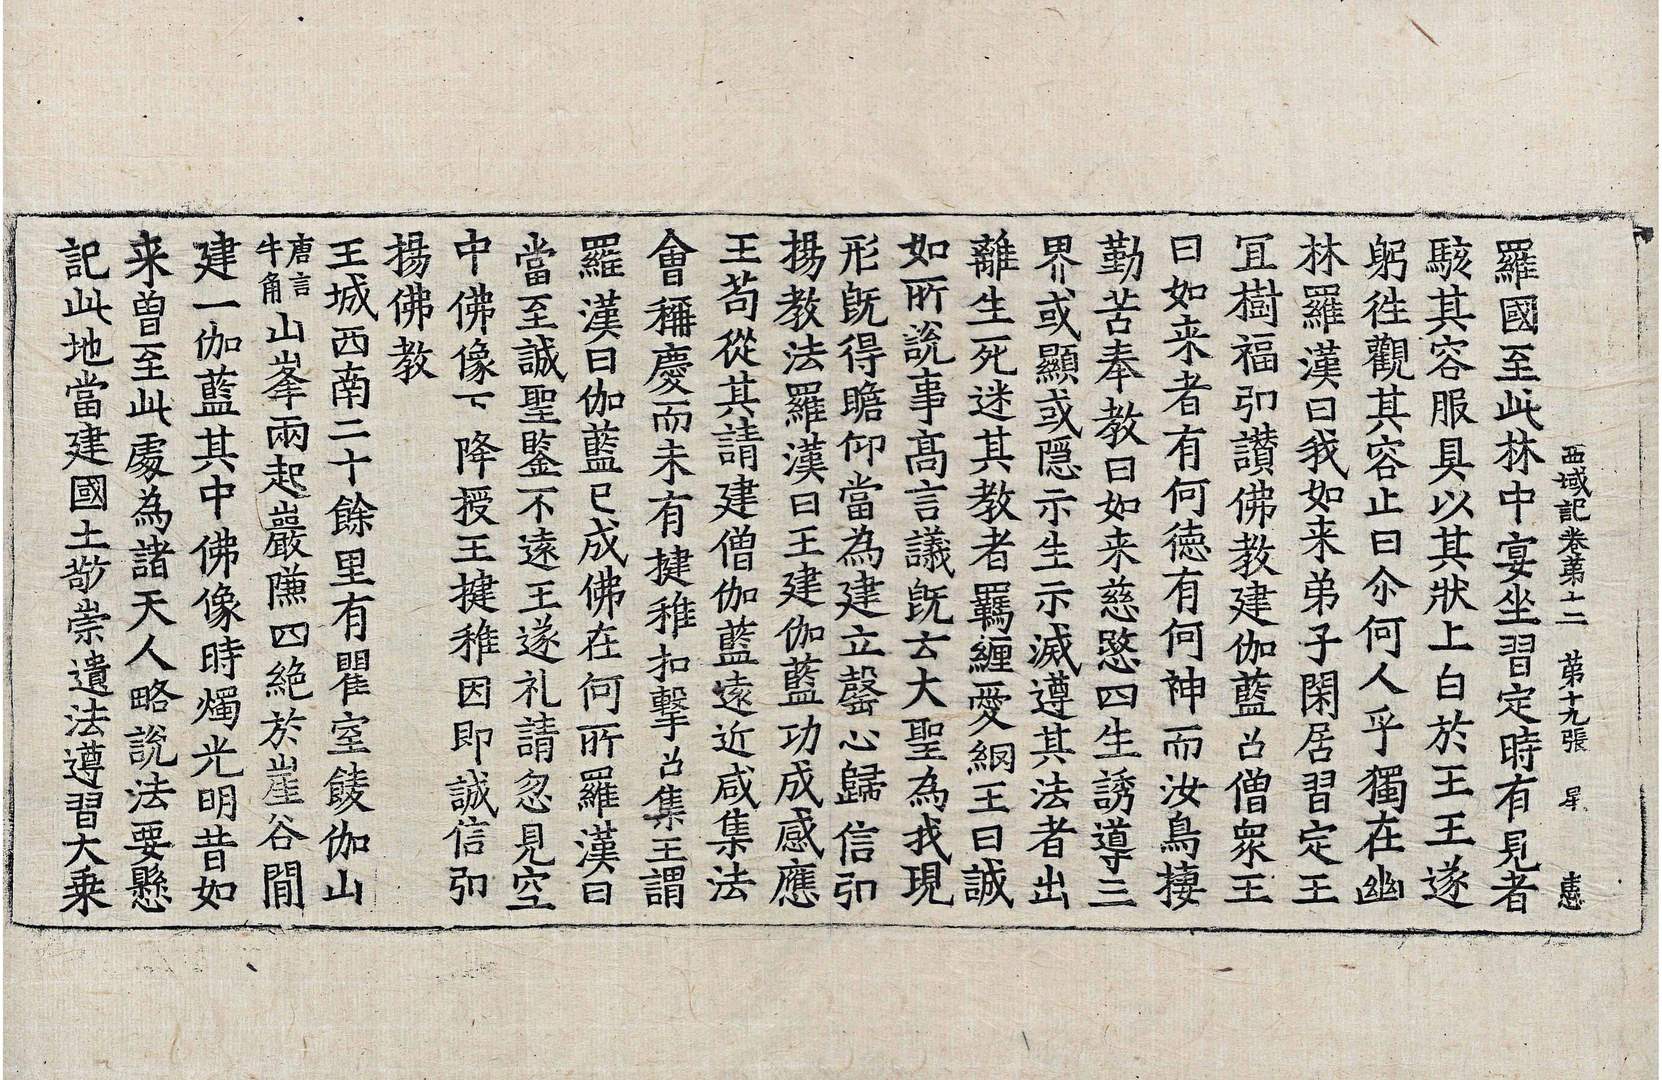 西域記卷第十二 第十九張 星 志
羅國至此林中宴坐習定時有見者
駭其容服具以其狀上白於王王遂
躬徃觀其容止曰尒何人乎獨在幽
林羅漢曰我如来弟子閑居習定王
冝樹福弘讃佛教建伽藍召僧衆王
曰如来者有何徳有何神而汝鳥捿
勤苦奉教曰如来慈愍四生誘導三
界或顯或隱示生示滅遵其法者出
離生死迷其教者羈纏愛網王曰誠
如所說事髙言議旣云大聖為我現
形旣得瞻仰當為建立罄心歸信弘
揚教法羅漢曰王建伽藍功成感應
王苟從其請建僧伽藍遠近咸集法
會稱慶而未有揵稚扣擊召集王謂
羅漢曰伽藍已成佛在何所羅漢曰
當至誠聖鑒不遠王遂礼請忽見空
中佛像下降授王揵稚因即誠信弘
揚佛教
王城西南二十餘里有瞿室䔖伽山
唐言牛角山峯兩起巖隒四絶於崖谷間
建一伽藍其中佛像時燭光明昔如
来曽至此處為諸天人略說法要懸
記此地當建國土敬崇遺法遵習大乗